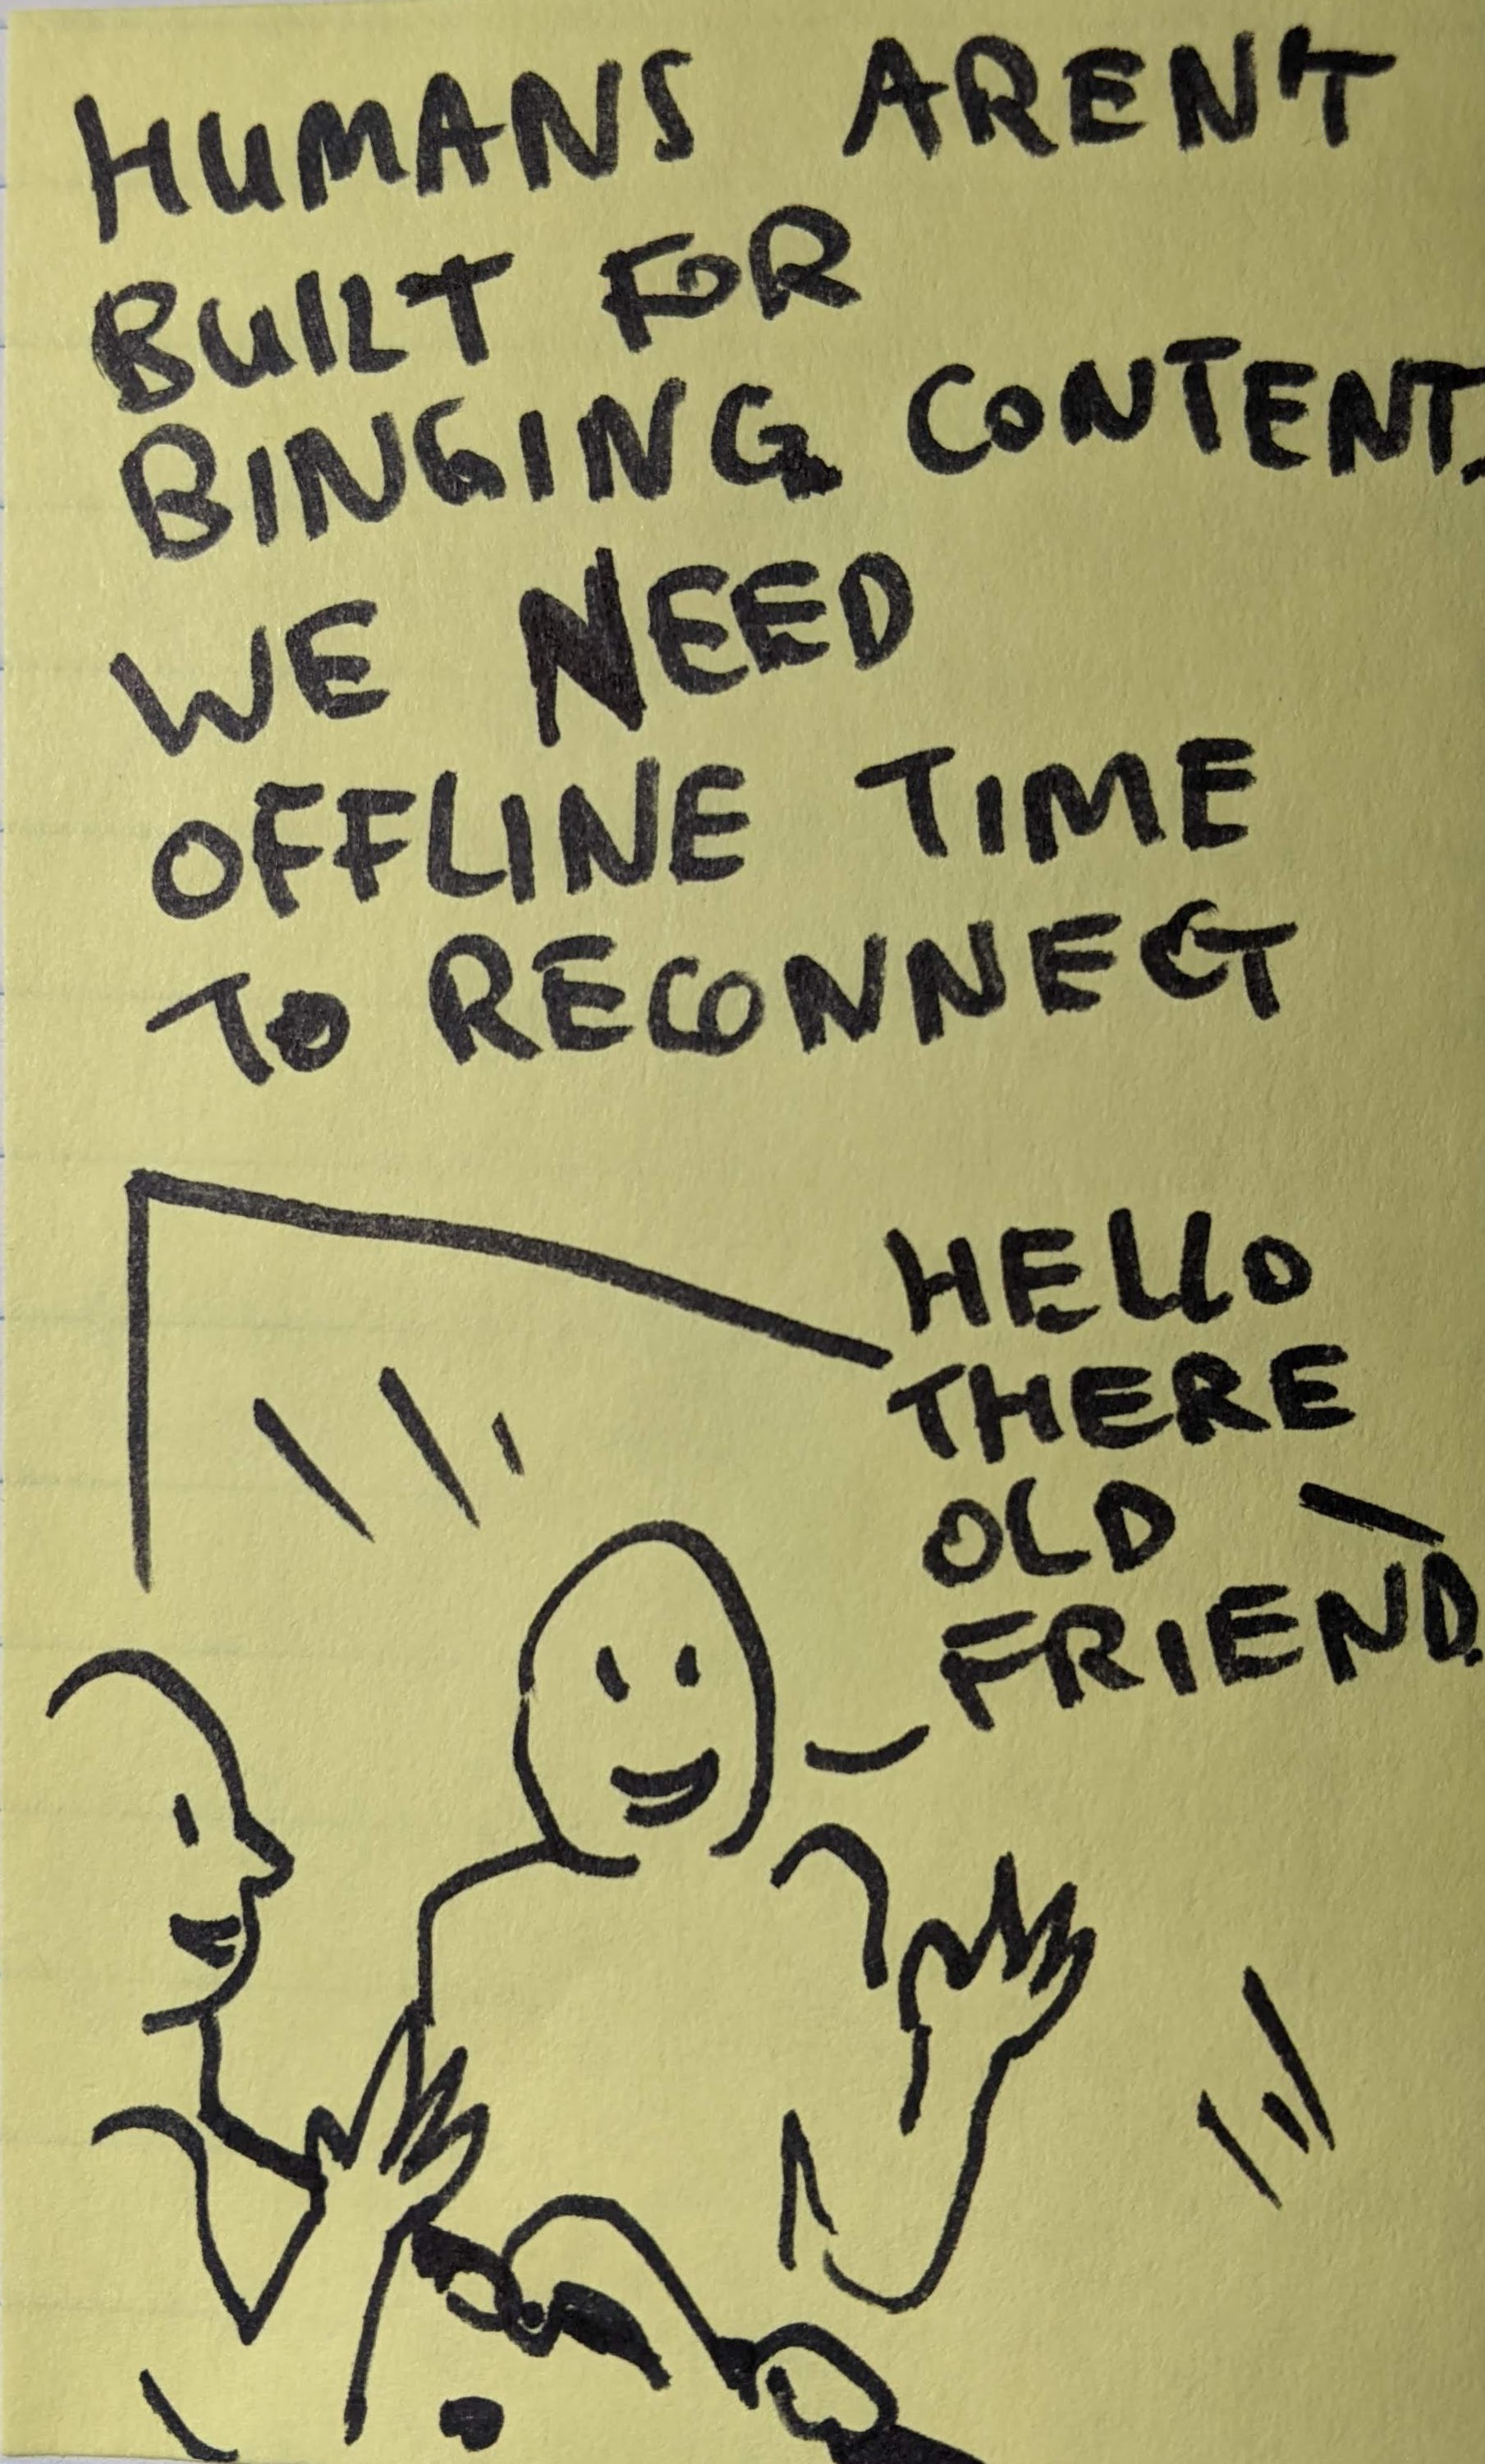 HUMANS AREN'T
BUILT FOR
BINGING CONTENT.
WE NEED
OFFLINE TIME
TO RECONNECT
HELLO
THERE
OLD
FRIEND.